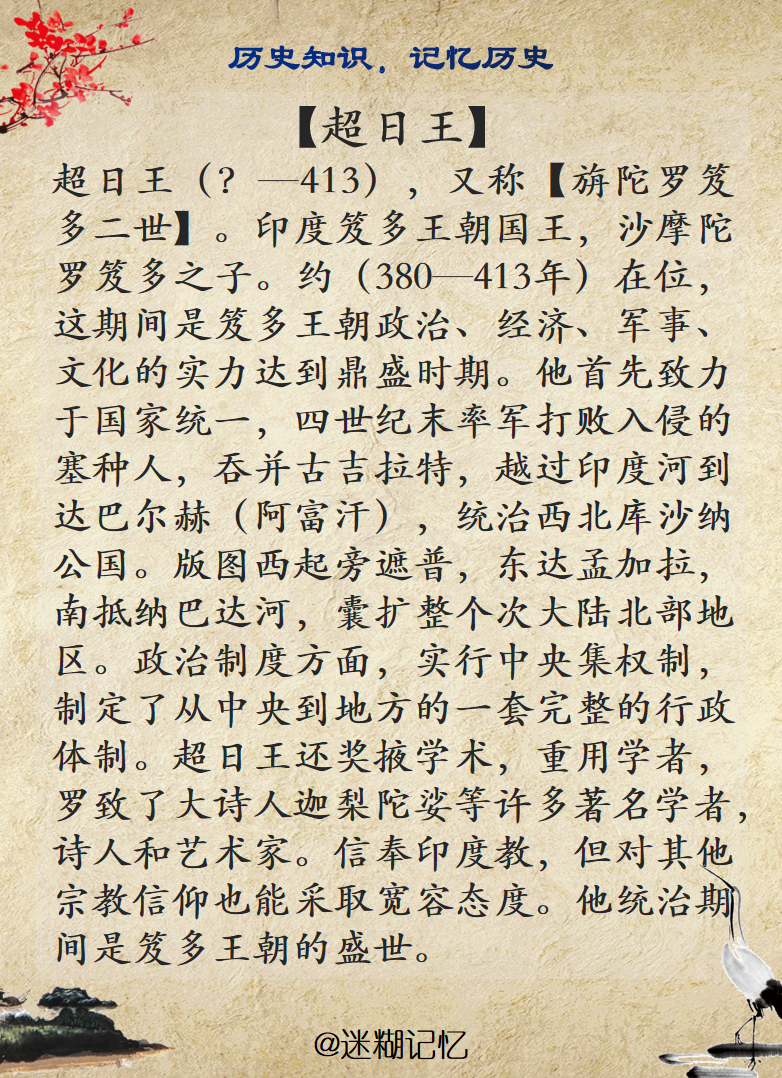 历史知识，记忆历史
【超日王】
超日王（？—413），又称【旃陀罗笈
多二世】。印度笈多王朝国王，沙摩陀
罗笈多之子。约（380—413年）在位，
这期间是笈多王朝政治、经济、军事、
文化的实力达到鼎盛时期。他首先致力
于国家统一，四世纪末率军打败入侵的
塞种人，吞并古吉拉特，越过印度河到
达巴尔赫（阿富汗），统治西北库沙纳
公国。版图西起旁遮普，东达孟加拉，
南抵纳巴达河，囊扩整个次大陆北部地
区。政治制度方面，实行中央集权制，
制定了从中央到地方的一套完整的行政
体制。超日王还奖掖学术，重用学者，
罗致了大诗人迦梨陀娑等许多著名学者，
诗人和艺术家。信奉印度教，但对其他
宗教信仰也能采取宽容态度。他统治期
间是笈多王朝的盛世。
@迷糊记忆